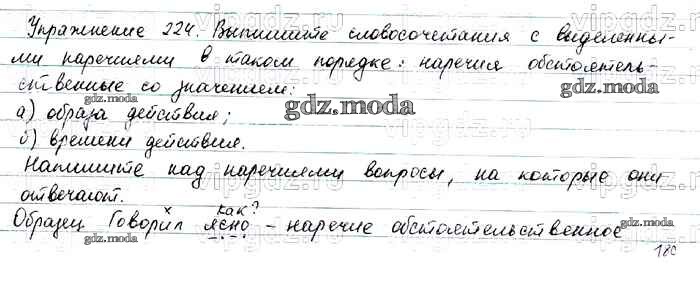 Упражнение 224. Выпишите словосочетания с выделенны-
ми наречиями в таком порядке: наречия обстоятель-
ственные со значением:
gdz.moda
а) образа действия; gdz.moda
б) времени действия. gdz.moda
Напишите над наречиями вопросы, на которые они
отвечают.
х как?
Образец Говорил ясно – наречие обстоятельственное
gdz.moda gdz.moda
180
vipgdz.ru